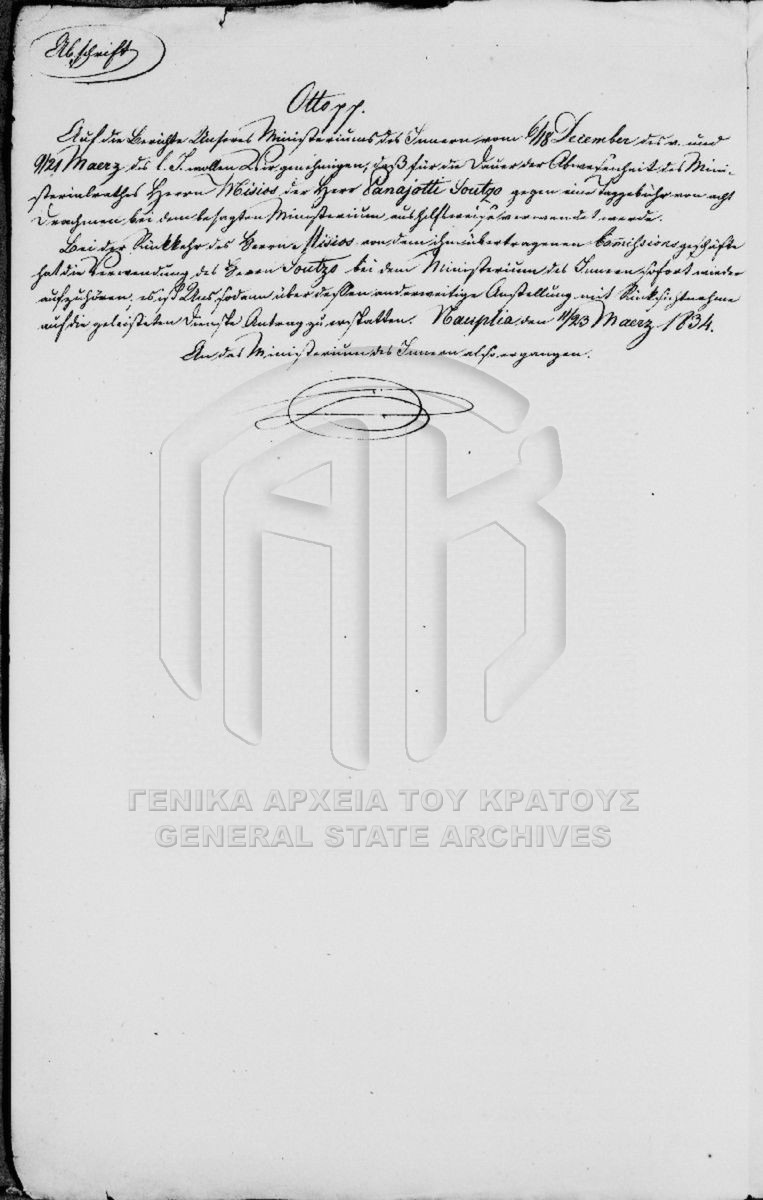 Abschrift
Otto pp.
Auf die Berichte Unseres Ministeriums des Innern vom 6/18 December des v. und
9/21 Maerz des l. J. wollen Wir genehmigen, daß für die Dauer der Abwesenheit des Mini-
sterialrathes Herrn Misios der Herr Panajotti Soutzo gegen eine Taggebühr von acht
Drachmen bei dem besagten Ministerium aushilfsweise verwendet werde.
Bei der Rückkehr des Herrn Misios von dem ihm übertragenen Com̄issionsgeschäfte
hat die Verwendung des Herrn Soutzo bei dem Ministerium des Innern sofort wieder
aufzuhören, es ist Uns sodann über dessen anderweitige Anstellung mit Rücksichtnahme
auf die geleisteten Dienste Antrag zu erstatten. Nauplia den 11/23 Maerz 1834.
An das Ministerium des Innern also ergangen.
ΓΕΝΙΚΑ ΑΡΧΕΙΑ ΤΟΥ ΚΡΑΤΟΥΣ
GENERAL STATE ARCHIVES